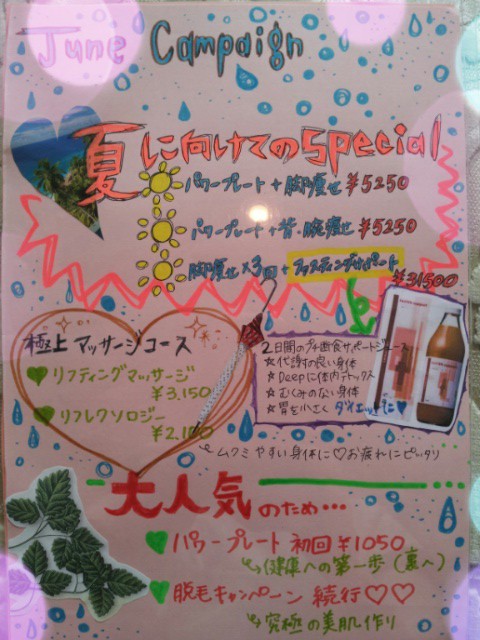 June Campaign
夏に向けてのSpecial
パワープレート+脚痩せ ¥5250
パワープレート+背・腕痩せ ¥5250
脚痩せ×3回+ファスティングサポート
¥31500
極上マッサージコース
リフティングマッサージ
¥3,150
リフレクソロジー
¥2,100
2日間のプチ断食サポートジュース
☆代謝の良い身体
☆Deepに体内デトックス
☆むくみのない身体
☆胃を小さく ダイエットに♡
ムクミやすい身体に♡お疲れにピッタリ
大人気のため…
パワープレート 初回¥1050
健康への第一歩(裏へ)
脱毛キャンペーン 続行♡♡
究極の美肌作り